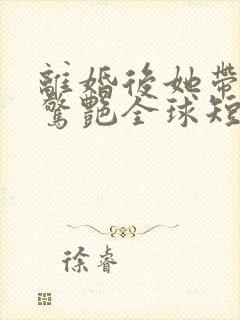 離婚後她帶
驚艷全球短
徐睿